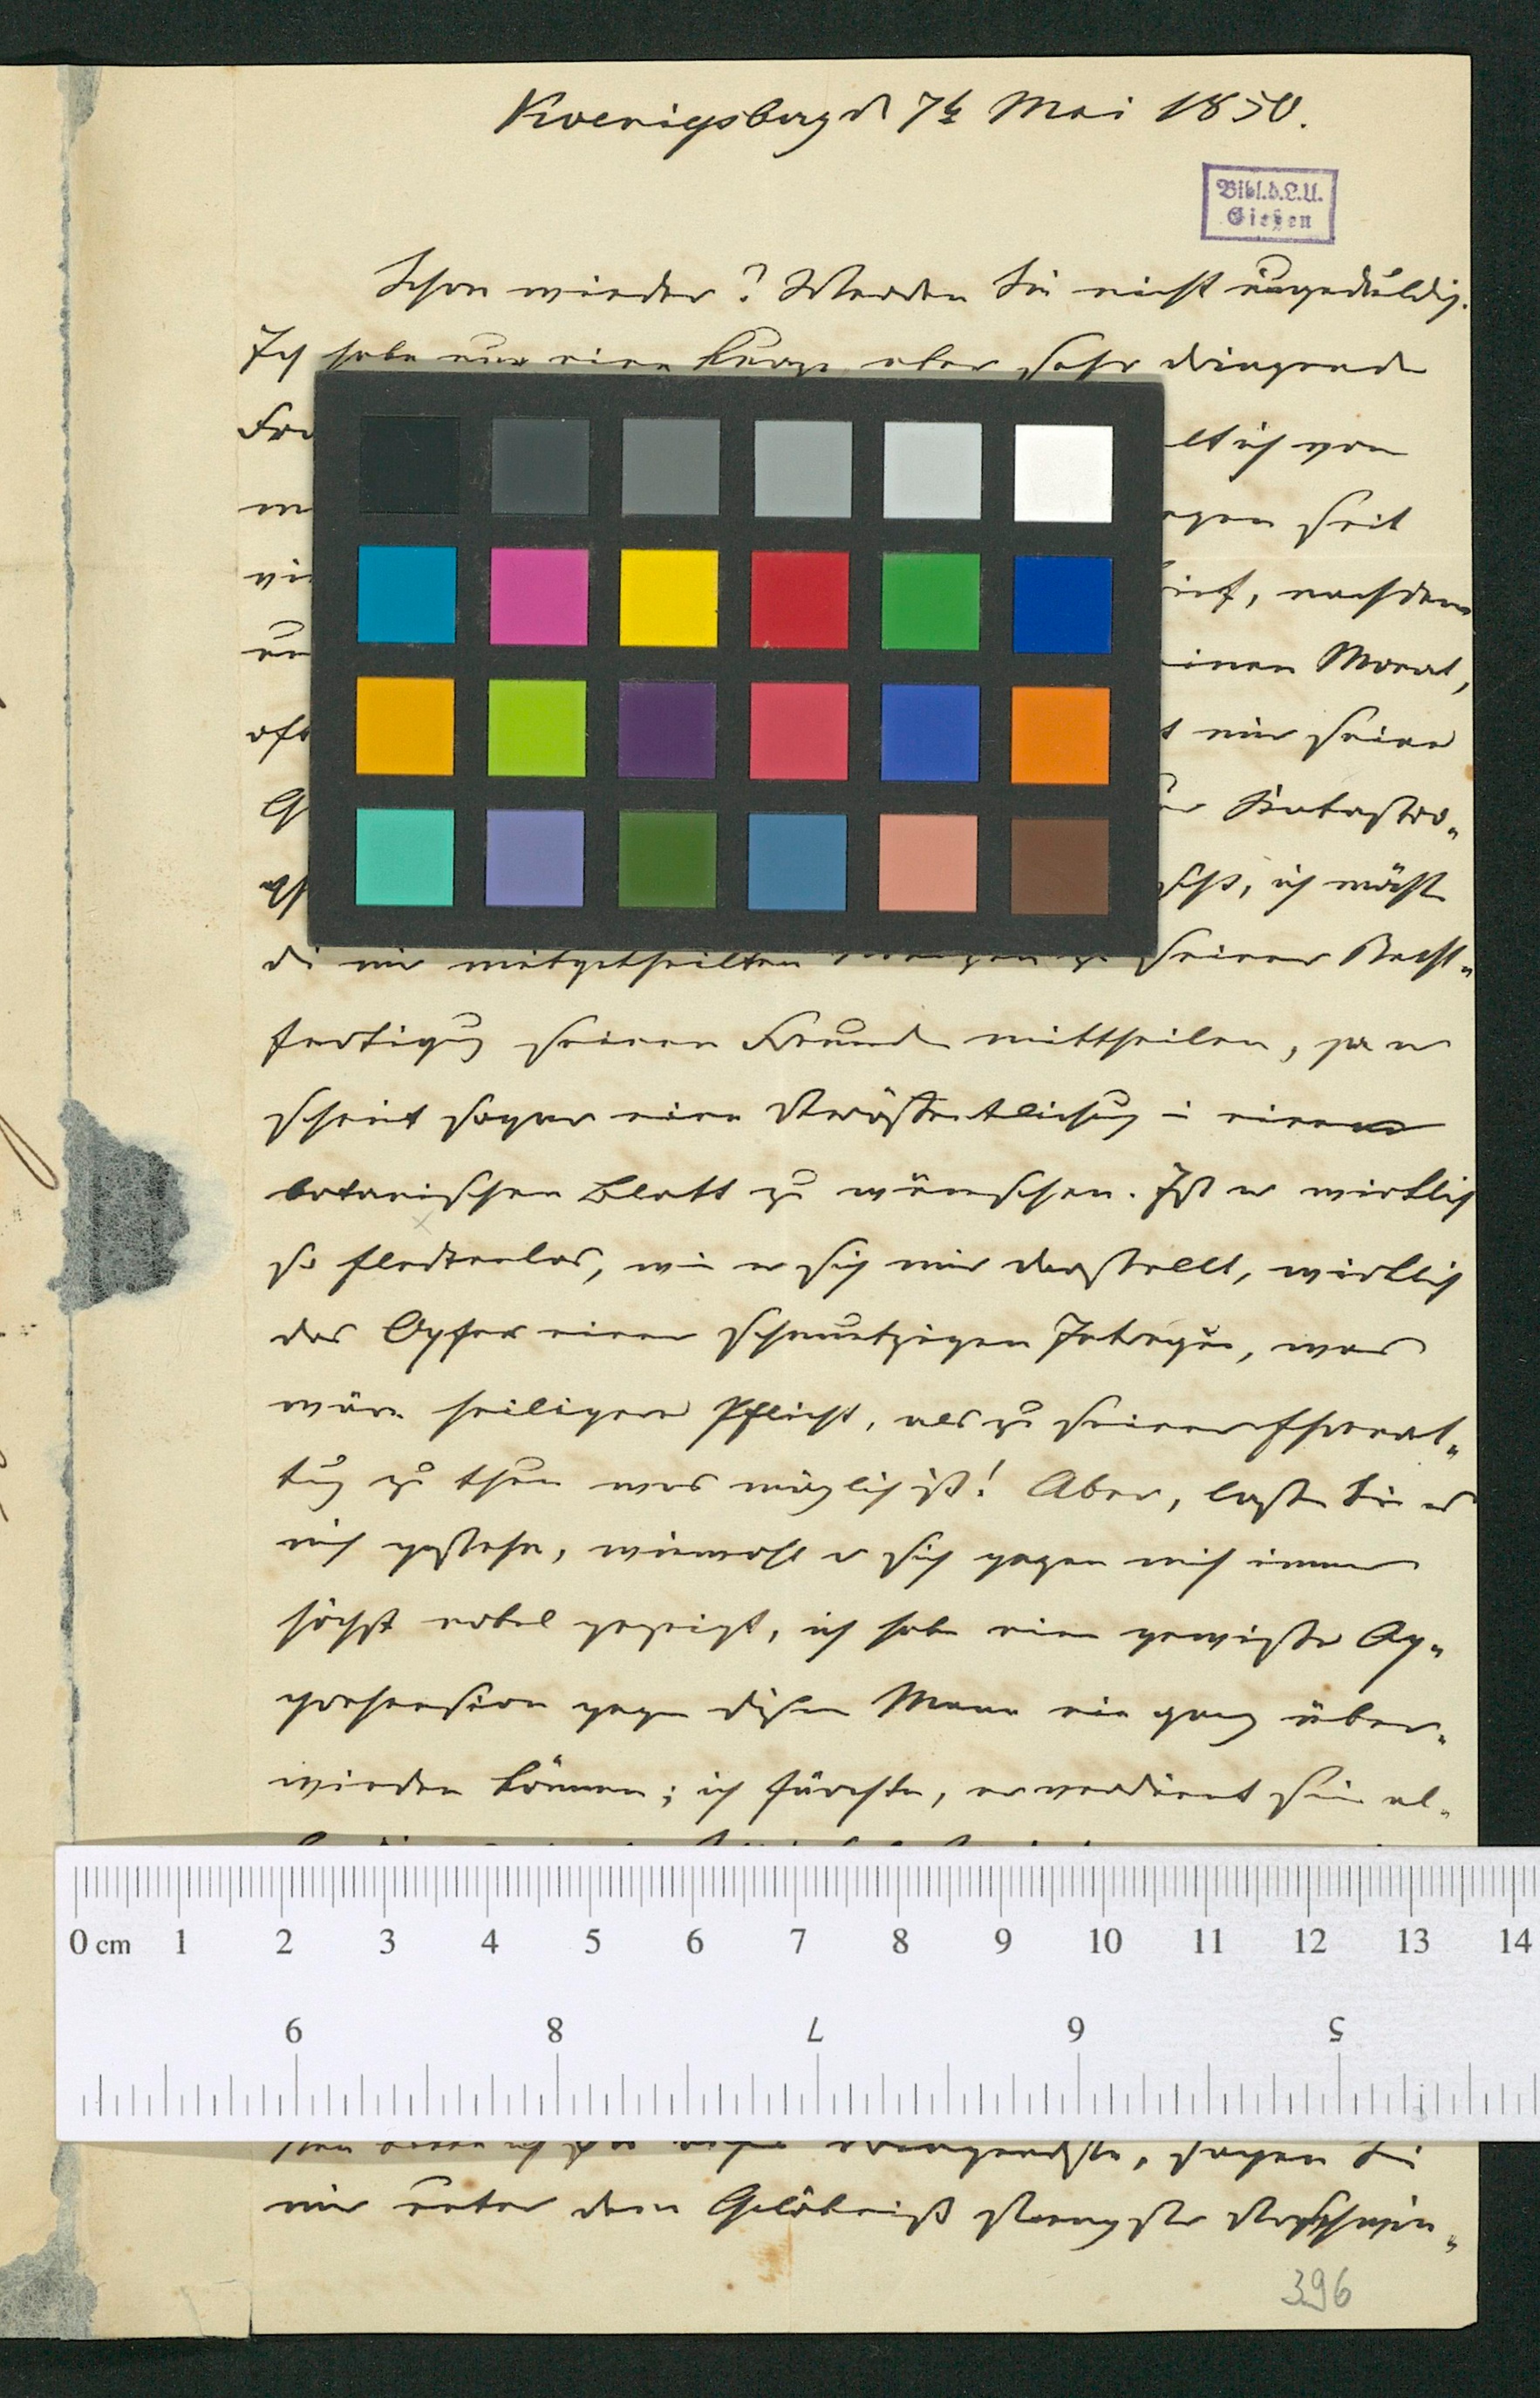 Koenigsberg d 7t Mai 1850.
Bibl.d.L.U.
Gießen
Schon wieder? Werden Sie nicht ungeduldig.
Ich habe nur eine kurze aber sehr dringende
Fra
ich von
m
seit
vi
nachdem
un
einen Monat,
oft
mir seine
G
Katastro-
ph
ich möchte
die mir mitgetheilten seiner Recht-
fertigung seinen Freunden mittheilen, ja er
scheint sogar eine Veröffentlichung in einem
botanischen Blatt zu wünschen. Ist er wirklich
so fleckenlos, wie er sich mir darstellt, wirklich
das Opfer einer schmutzigen Intrigue, was
wäre heiligere Pflicht, als zu seiner Ehrenret-
tung zu thun was möglich ist! Aber, lassen Sie es
mich gestehn, wiewohl er sich gegen mich immer
höchst nobel gezeigt, ich habe eine gewisse Ap-
prehension gegen diesen Mann nie ganz über-
winden können; ich fürchte, er verdient sein al-
0 cm 1 2 3 4 5 6 7 8 9 10 11 12 13 14
9 8 7 6 5
dringendste, sagen Sie
mir unter dem Gelöbniß strengster Verschwie-
396